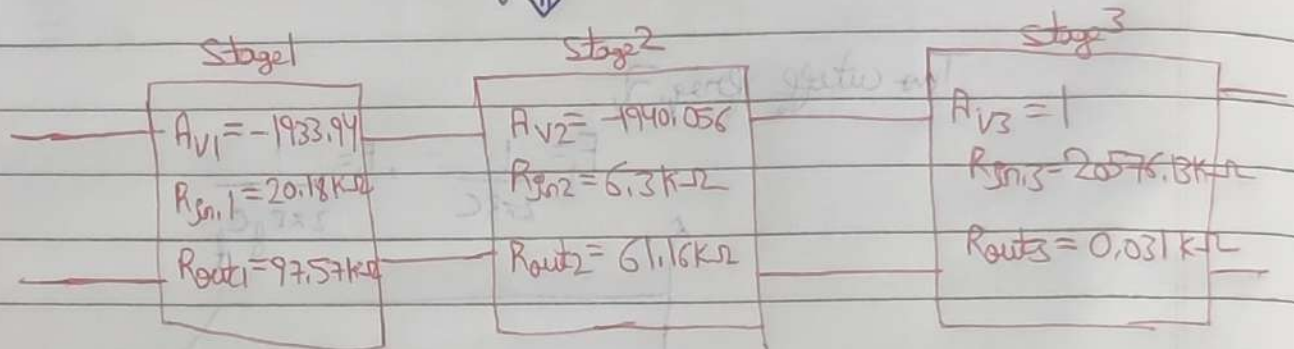 Stage1
A_V1 = -1933.94
R_in,1 = 20.18KΩ
R_out1 = 97.57KΩ
Stage2
A_V2 = -1940.056
R_in2 = 6.3KΩ
R_out2 = 61.16KΩ
Stage3
A_V3 = 1
R_in,3 = 20576.13KΩ
R_out3 = 0.031KΩ